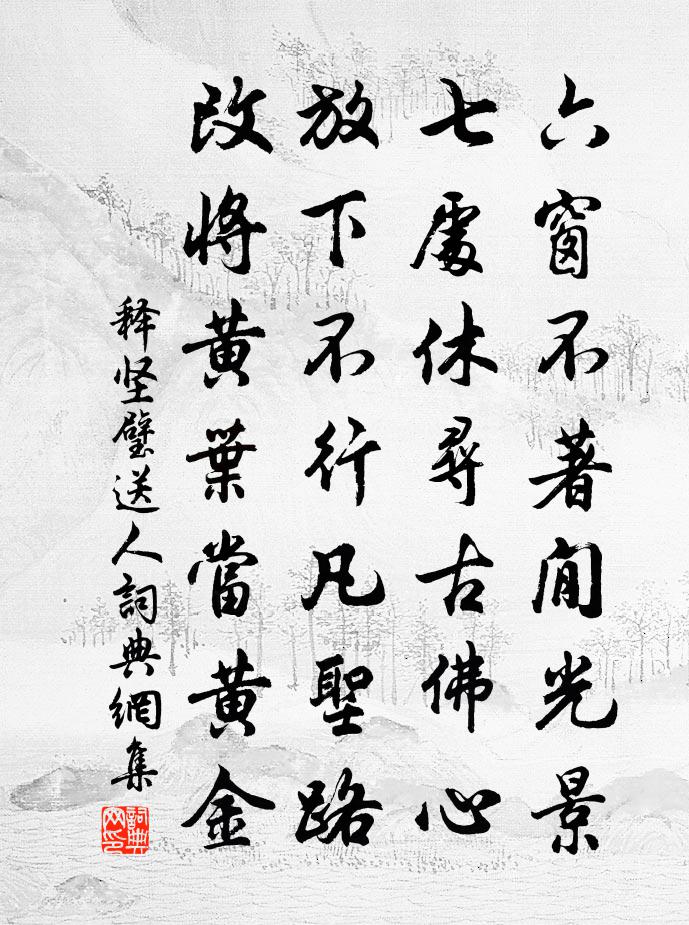 六窗不著閒光景
七處休尋古佛心
放下不行凡聖路
改將黃葉當黃金
释坚璧送人詞典網集
詞典网印